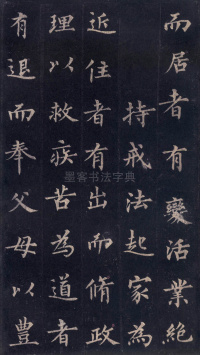 而居者有變活業絶
持戒法起家為
近住者有出而脩政
理以救疾苦為道者
有退而奉父母以豊
墨客书法字典